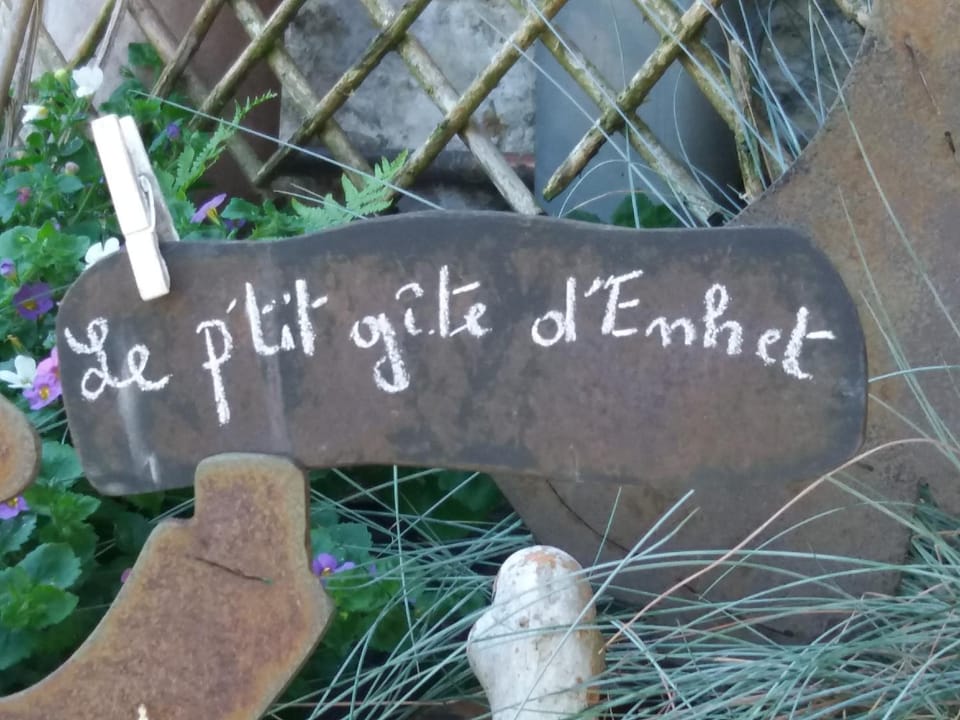 Le p'tit gîte d'Enhet